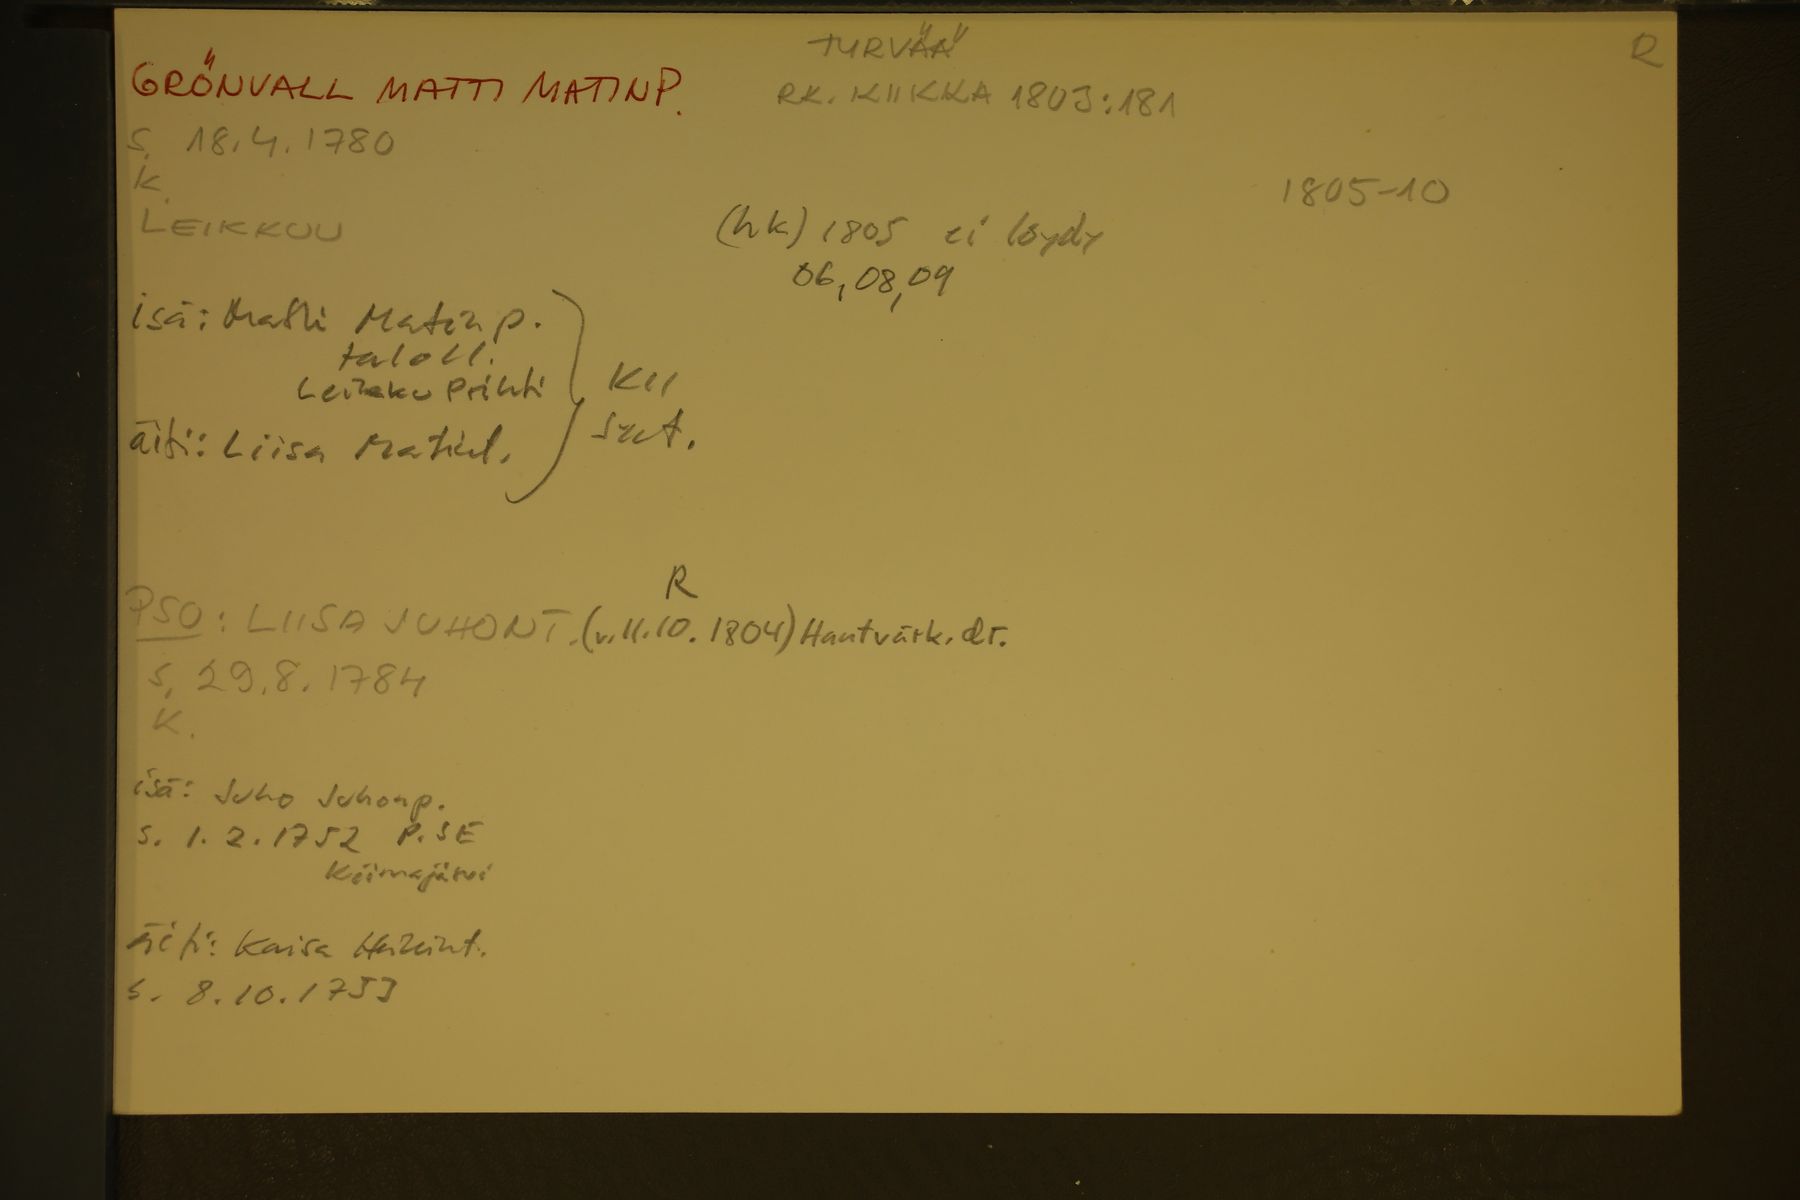 TYRVÄÄ
R
GRÖNVALL MATTI MATINP.
RK. KIIKKA 1803:181
s. 18.4.1780
K.
1805-10
LEIKKUU
(hk) 1805 ei löydy
06, 08, 09
isä: Matti Matinp.
taloll.
Leikku Prihti
KII
synt.
äiti: Liisa Matint.
R
PSO: LIISA JUHONT. (v. 11.10.1804) Hantvärk. dr.
s. 29.8.1784
K.
isä: Juho Juhonp.
s. 1.2.1752 P.SE
Kiimajärvi
äiti: Kaisa Heikint.
s. 8.10.1753